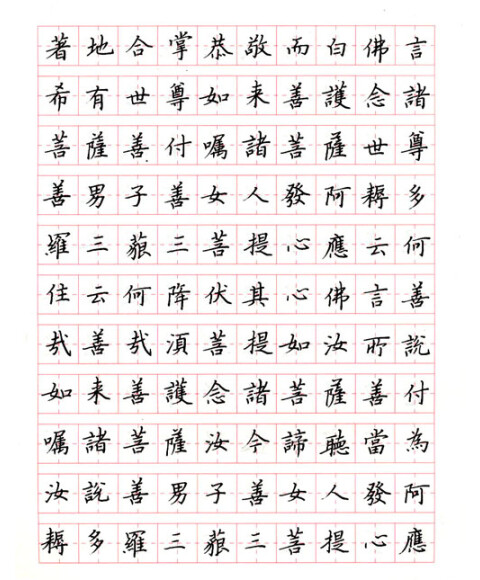 著地合掌恭敬而白佛言
希有世尊如来善護念諸
菩薩善付囑諸菩薩世尊
善男子善女人發阿耨多
羅三藐三菩提心應云何
住云何降伏其心佛言善
㢤善㢤湏菩提如汝所說
如来善護念諸菩薩善付
囑諸菩薩汝今諦聽當為
汝說善男子善女人發阿
耨多羅三藐三菩提心應